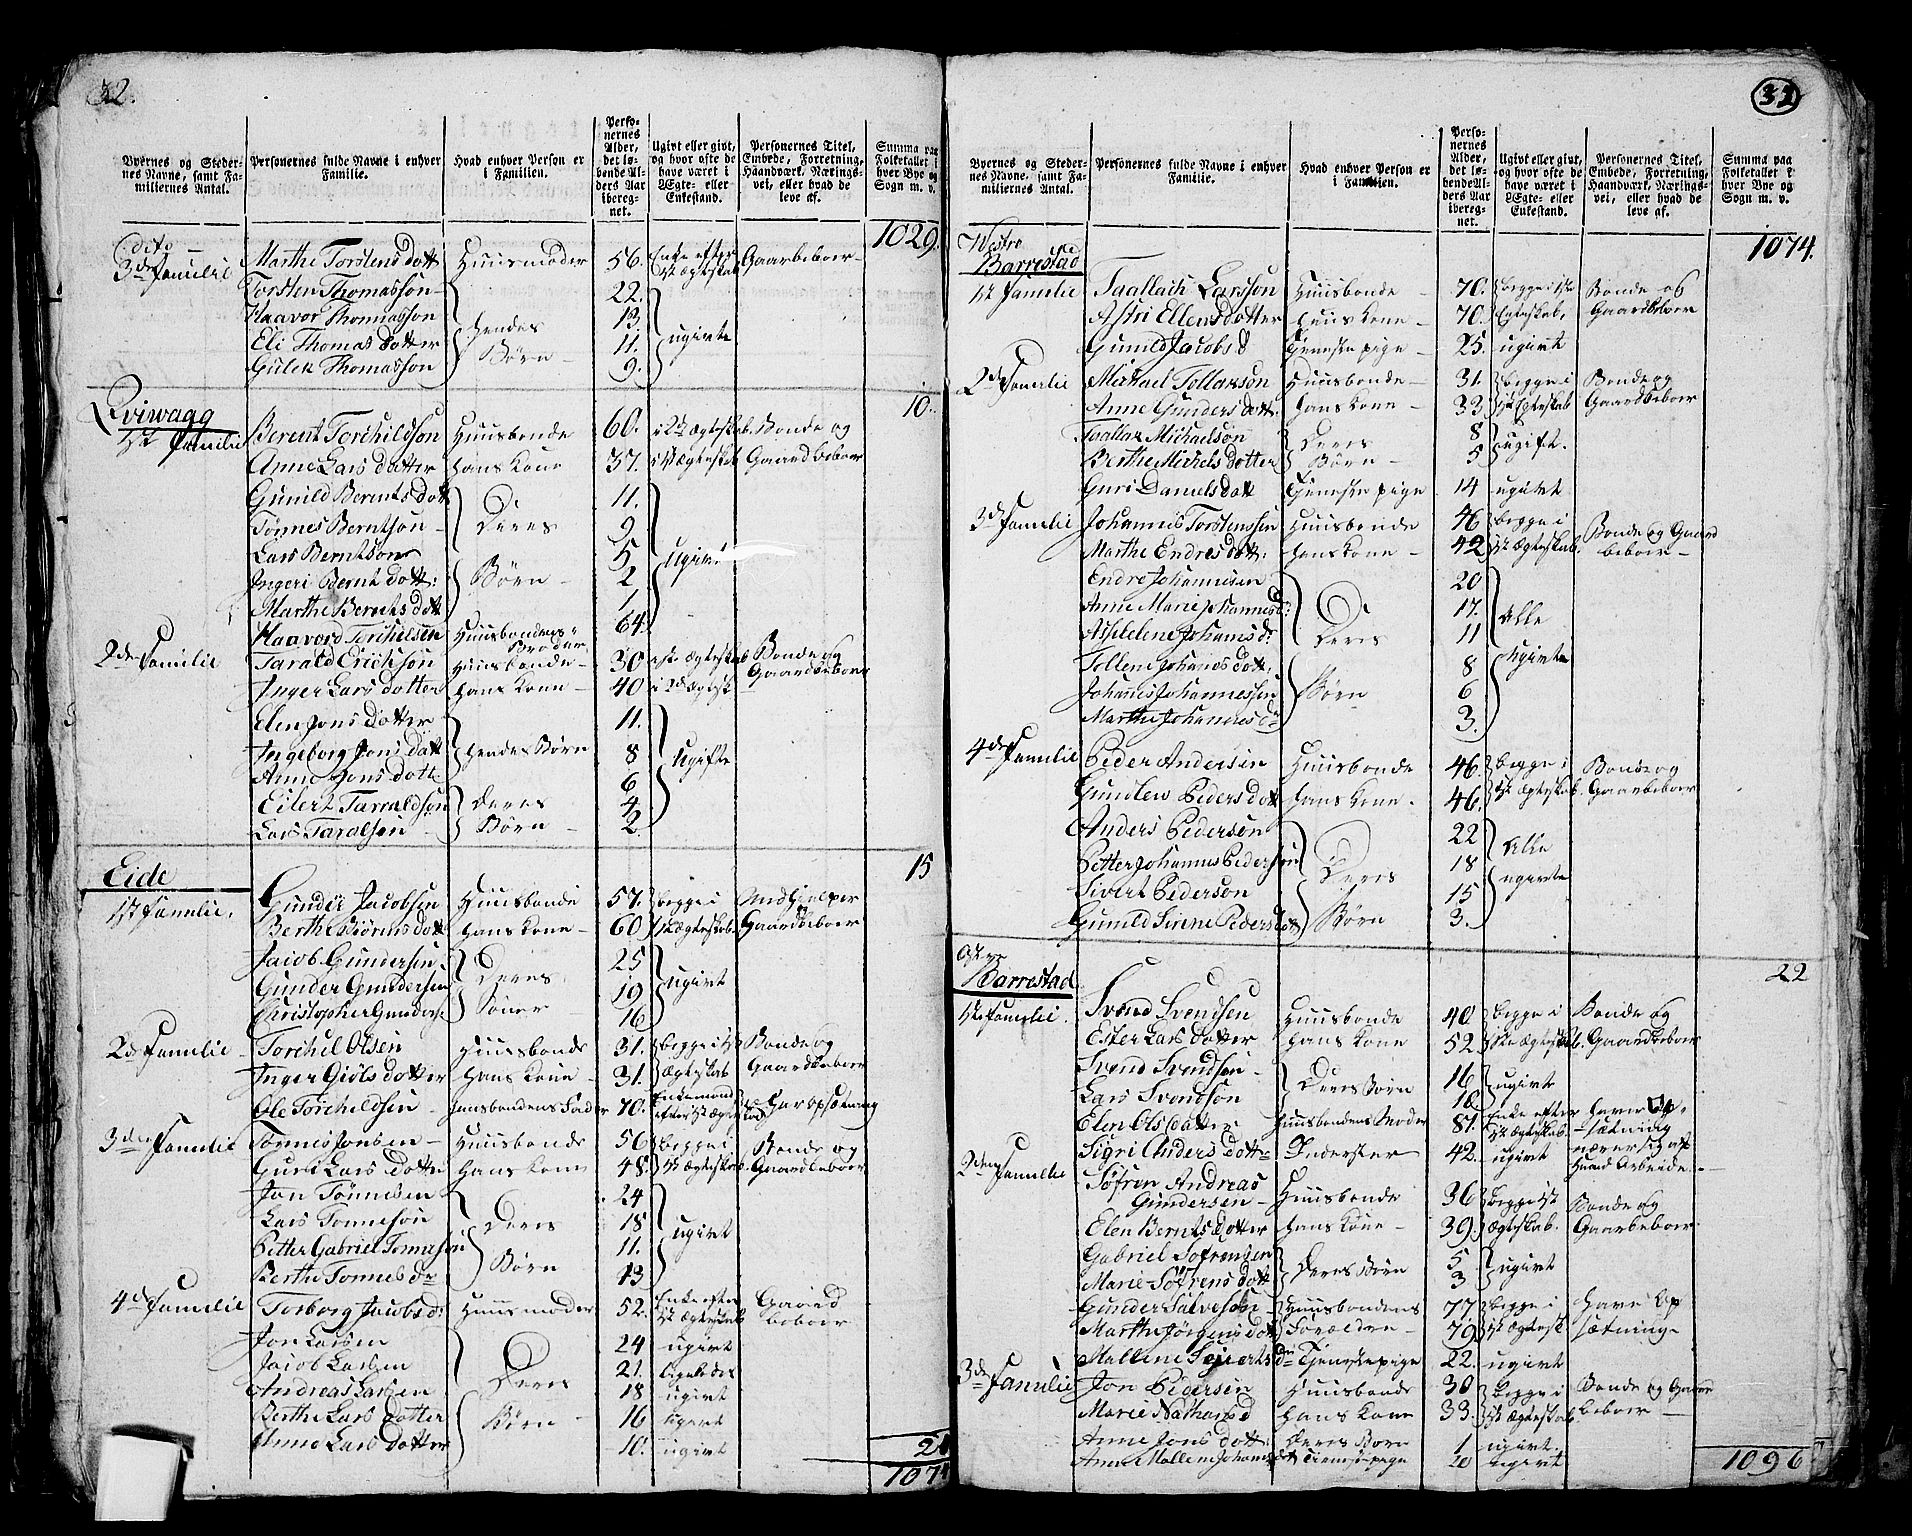 32.
Byernes og Steder-
nes Navne, samt Fa-
miliernes Antal.
Personernes fulde Navne i enhver
Familie.
Hvad enhver Person er
i Familien.
Perso-
nernes
Alder,
det lø-
bende Al-
ders Aar
ibereg-
net.
Ugivt eller givt,
og hvor ofte de
have været i
Ægte- eller
Enkestand.
Personernes Titel,
Embede, Forretning,
Haandværk, Nærings-
vei, eller hvad de
leve af.
Summa paa
Folketallet i
hver Bye og
Sogn m. v.
1029.
dito
3de Familie Marthe Torstens dott Huusmoder 56. Enke efter 1st Ægteskab Gaarbeboer
Torsten Thomasson 22.
Haavor Thomasson hendes 13. ugivte
Eli Thomas dotter Børn 11.
Gulek Thomasson 9.
10.
Qviwaag
1st Familie Berent Torchildson Huusbonde 60. i 2det Ægteskab Bonde og
Anne Lars dotter hans Kone 37. 1st Ægteskab Gaardbeboer
Gunild Berents dott 11.
Tønnes Berntson Deres 9
Lars Berntson 5 ugivt
Ingeri Bernt dott: Børn 2
Marthe Bernts dott 1.
Haavord Torchilsen Huusbondens Broder 64.
2den Familie Tarald Erickson Huusbonde 30 1ste Ægteskab Bonde og
Inger Lars dotter hans Kone 40 i 2det Ægtesk Gaardbeboer
Elen Jons dotter 11.
Ingeborg Jons dott hendes Børn 8 Ugifte
Anne Jons dott 6
Eilert Tarraldson Deres 4
Lars Taralsen Børn 2
15
Eide
1st Familie. Gunder Jacobsen Huusbonde 57. begge i
Berthe Biørens dott hans Kone 60 1st Ægteskab. Gaardbeboer
Jacob Gundersen 25
Gunder Gundersen Deres 19 ugivt
Christopher Gunders: Sønner 16
2de Familie Torchel Olsen Huusbonde 31. begge i 1st Bonde og
Inger Giøls dotter hans Kone 31. Ægteskab Gaardbeboer
Ole Torchildsen husbondens Fader 70. Enkemand efter 1st Ægteskab har opsætning
3de Familie Tønnes Jonsen Huusbonde 56 begge i Bonde og
Guri Lars dotter hans Kone 48. 1st Ægteskab Gaardbeboer
Jon Tønnesen 24
Lars Tonneson Deres 18 ugivt
Petter Gabriel Tonneson 11.
Berthe Tonnes dr Børn 13
4de Familie Torborg Jacobs d: Huusmoder 52. Enke efter 1st Ægteskab Gaard beboer
Jon Larsen 24 ugivt
Jacob Larsen Deres 21. Ligeledes
Andreas Larsen 18 ugivt
Berthe Lars dotter Børn 16 ugivt
Anne Lars dotter 10. ugivt
1074
Byernes og Steder-
nes Navne, samt Fa-
miliernes Antal.
Personernes fulde Navne i enhver
Familie.
Hvad enhver Person er
i Familien.
Perso-
nernes
Alder,
det lø-
bende Al-
ders Aar
ibereg-
net.
Ugivt eller givt,
og hvor ofte de
have været i
Ægte- eller
Enkestand.
Personernes Titel,
Embede, Forretning,
Haandværk, Nærings-
vei, eller hvad de
leve af.
Summa paa
Folketallet i
hver Bye og
Sogn m. v.
1074.
Westre
Barrestad
1st Familie Taallach Larsson Huusbonde 70. begge i 1ste Bonde og
Astri Ellens dotter huus Kone 70. Egteskab, Gaardbeboer
Gunild Jacobs d Tjeneste pige 25. ugivt
2de Familie Michael Tollarson Huusbonde 31. begge i Bonde og
Anne Gunders dott. hans Kone 33 1st Egteskab Gaardbeboer
Taallar Michaelson Deres 8 ugift.
Berthe Michels dotter Børn 5
Guri Daniels dott Tjeneste pige 14 ugivt
3de Familie Johannes Torstenssen Huusbonde 46 begge i Bonde og Gaard
Marthe Endres dott. hans Kone 42 1st Ægteskab. beboer
Endre Johannesen 20
Anne Marie Johannes d: 17. Alle
Johans d: Deres 11
Tollene Johannes dott. 8 Ugivte
Johannes Johannessen Børn 6
Marthe Johannes d 3.
4de Familie Peder Andersen Huusbonde 46. begge i Bonde og
Gundlew Peders dott hans Kone 46. 1st Ægteskab. Gaarbeboer
Anders Pederson 22 Alle
Petter Johannes Pederson Deres 18
Sivert Pederson 15 ugivte
Gunild Sirene Peders dott Børn 3.
22
Østre
Barrestad
1ste Familie. Svend Svendsen Huusbonde 40 begge i Bonde og
Ester Lars dotter hans Kone 52 1ste Ægteskab. Gaardbeboer
Svend Svendsen Deres Børn 16 ugivt
Lars Svendson 12
Elen Ols dotter Huusbondens Moder 81. Enke efter 1st Ægteskab. haver Op-
sætning
2den Familie Sigri Anders dotter Inderster 42. ugivt nærer sig af
Haand Arbeide
Søfren Andreas
Gundersen Huusbonde 36 begge i 1st Bonde og
Elen Bernts dotter hans Kone 39. Ægteskab. Gaarbeboer
Gabriel Sofrensen Deres Børn 5 ugivt
Marie Søfrens dott 3
Gunder Salveson Huusbondens 77 begge i have Op
Marthe Jørgens dott Forældre 79 1st Ægtesk sætning
Mallene Sejerts dr Tjenestepige 22. ugivt
3de Familie Jon Pedersen Huusbonde 30 begge i Bonde og Gaard
Marie Nathans d hans Kone 33. 1st Ægteskab. beboer
Anne Jons dott: Deres Børn 1 ugivt.
Anne Mallene Johans dott Tienestepige 20 ugivt
1096